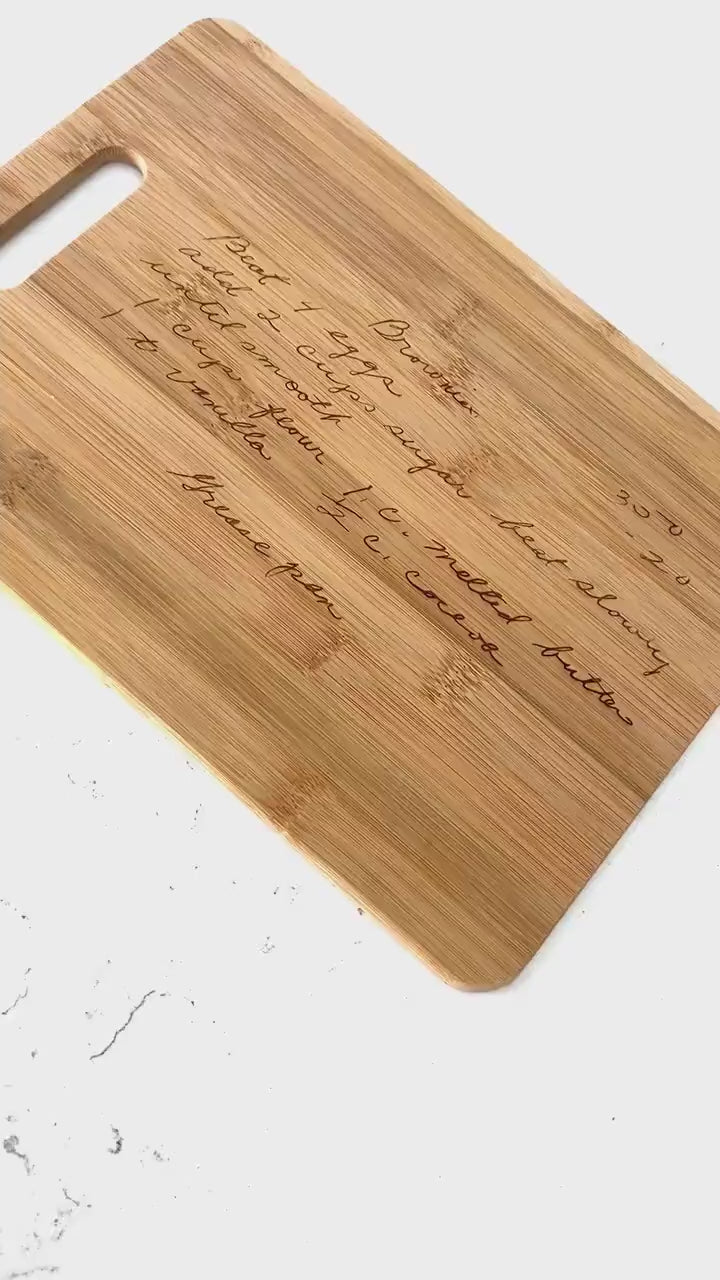 Brownies
350
- 20
Beat 4 eggs
add 2 cups sugar beat slowly
until smooth
1 cup flour 1 c. melted butter
1 t vanilla ½ c. cocoa
Grease pan